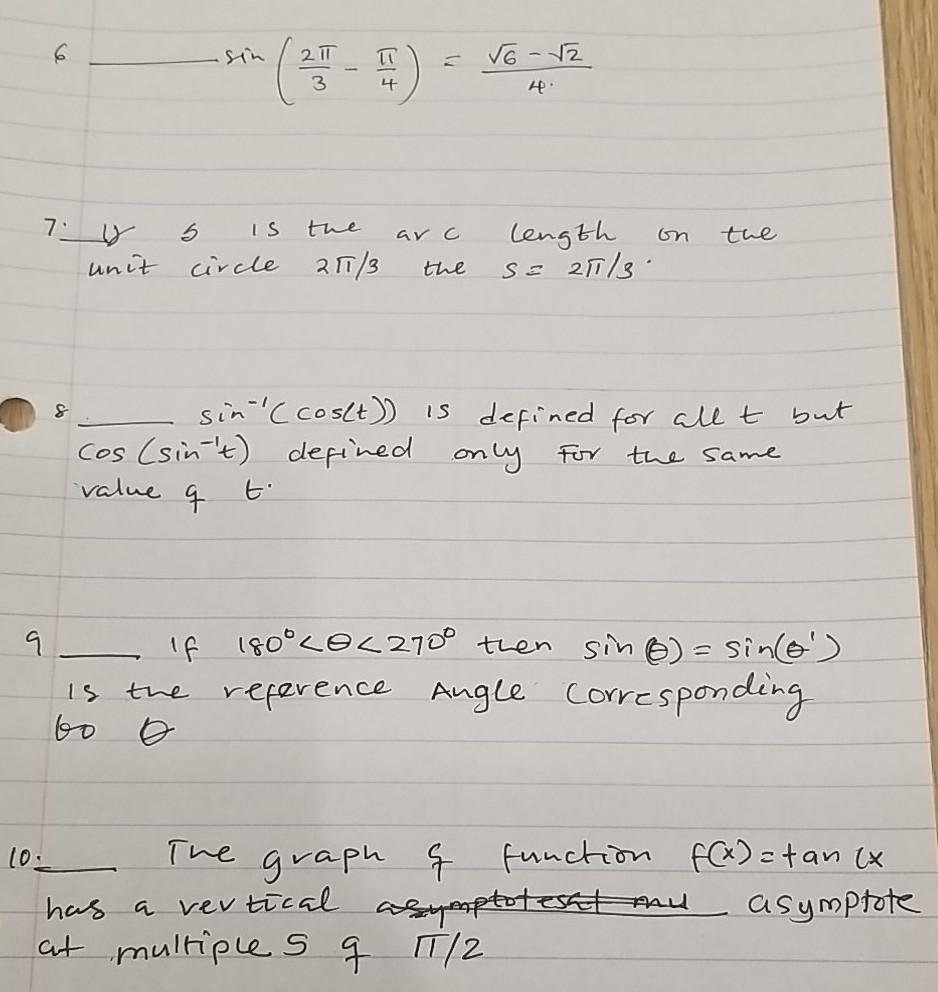 6 ______ sin (2π/3 - π/4) = (√6 - √2)/4.
7. __ If s is the arc length on the
unit circle 2π/3 the s = 2π/3.
8. ____ sin⁻¹(cos(t)) is defined for all t but
cos (sin⁻¹t) defined only For the same
value of t.
9 ____ If 180° < θ < 270° then sin θ) = sin(θ')
is the reference Angle Corresponding
to θ
10. ____ The graph of function f(x) = tan (x
has a vertical asymptote
at multiple s of π/2